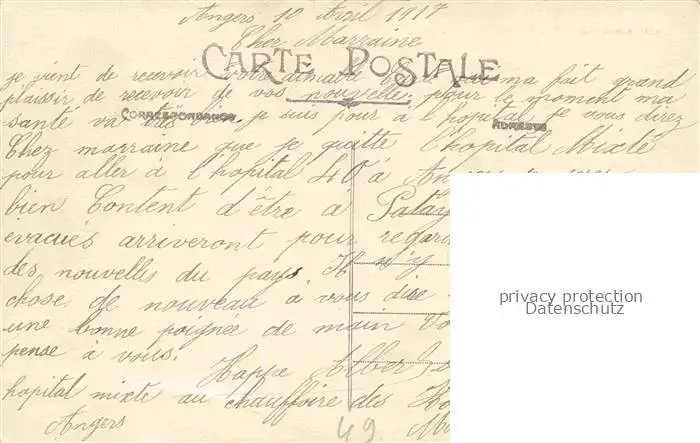 Angers 10 Avril 1917
Cher Marraine
CARTE POSTALE
je vient de recevoir votre aimable qui ma fait grand
plaissir de recevoir de vos nouvelle. pour le moment ma
santé va très bie. je suis pour à l'hopital je vous direz
CORRESPONDANCE
ADRESSE
Chez marraine que je quitte l'hopital Mixte
pour aller à l'hopital 40 à
bien Content d'être a
évacués arriveront pour regard
des nouvelles du pays. Il n'y
chose de nouveau à vous dire
une bonne poignée de main
pense à vous.
Happe Alber
hopital mixte au chauffoire des
Angers
49
privacy protection
Datenschutz